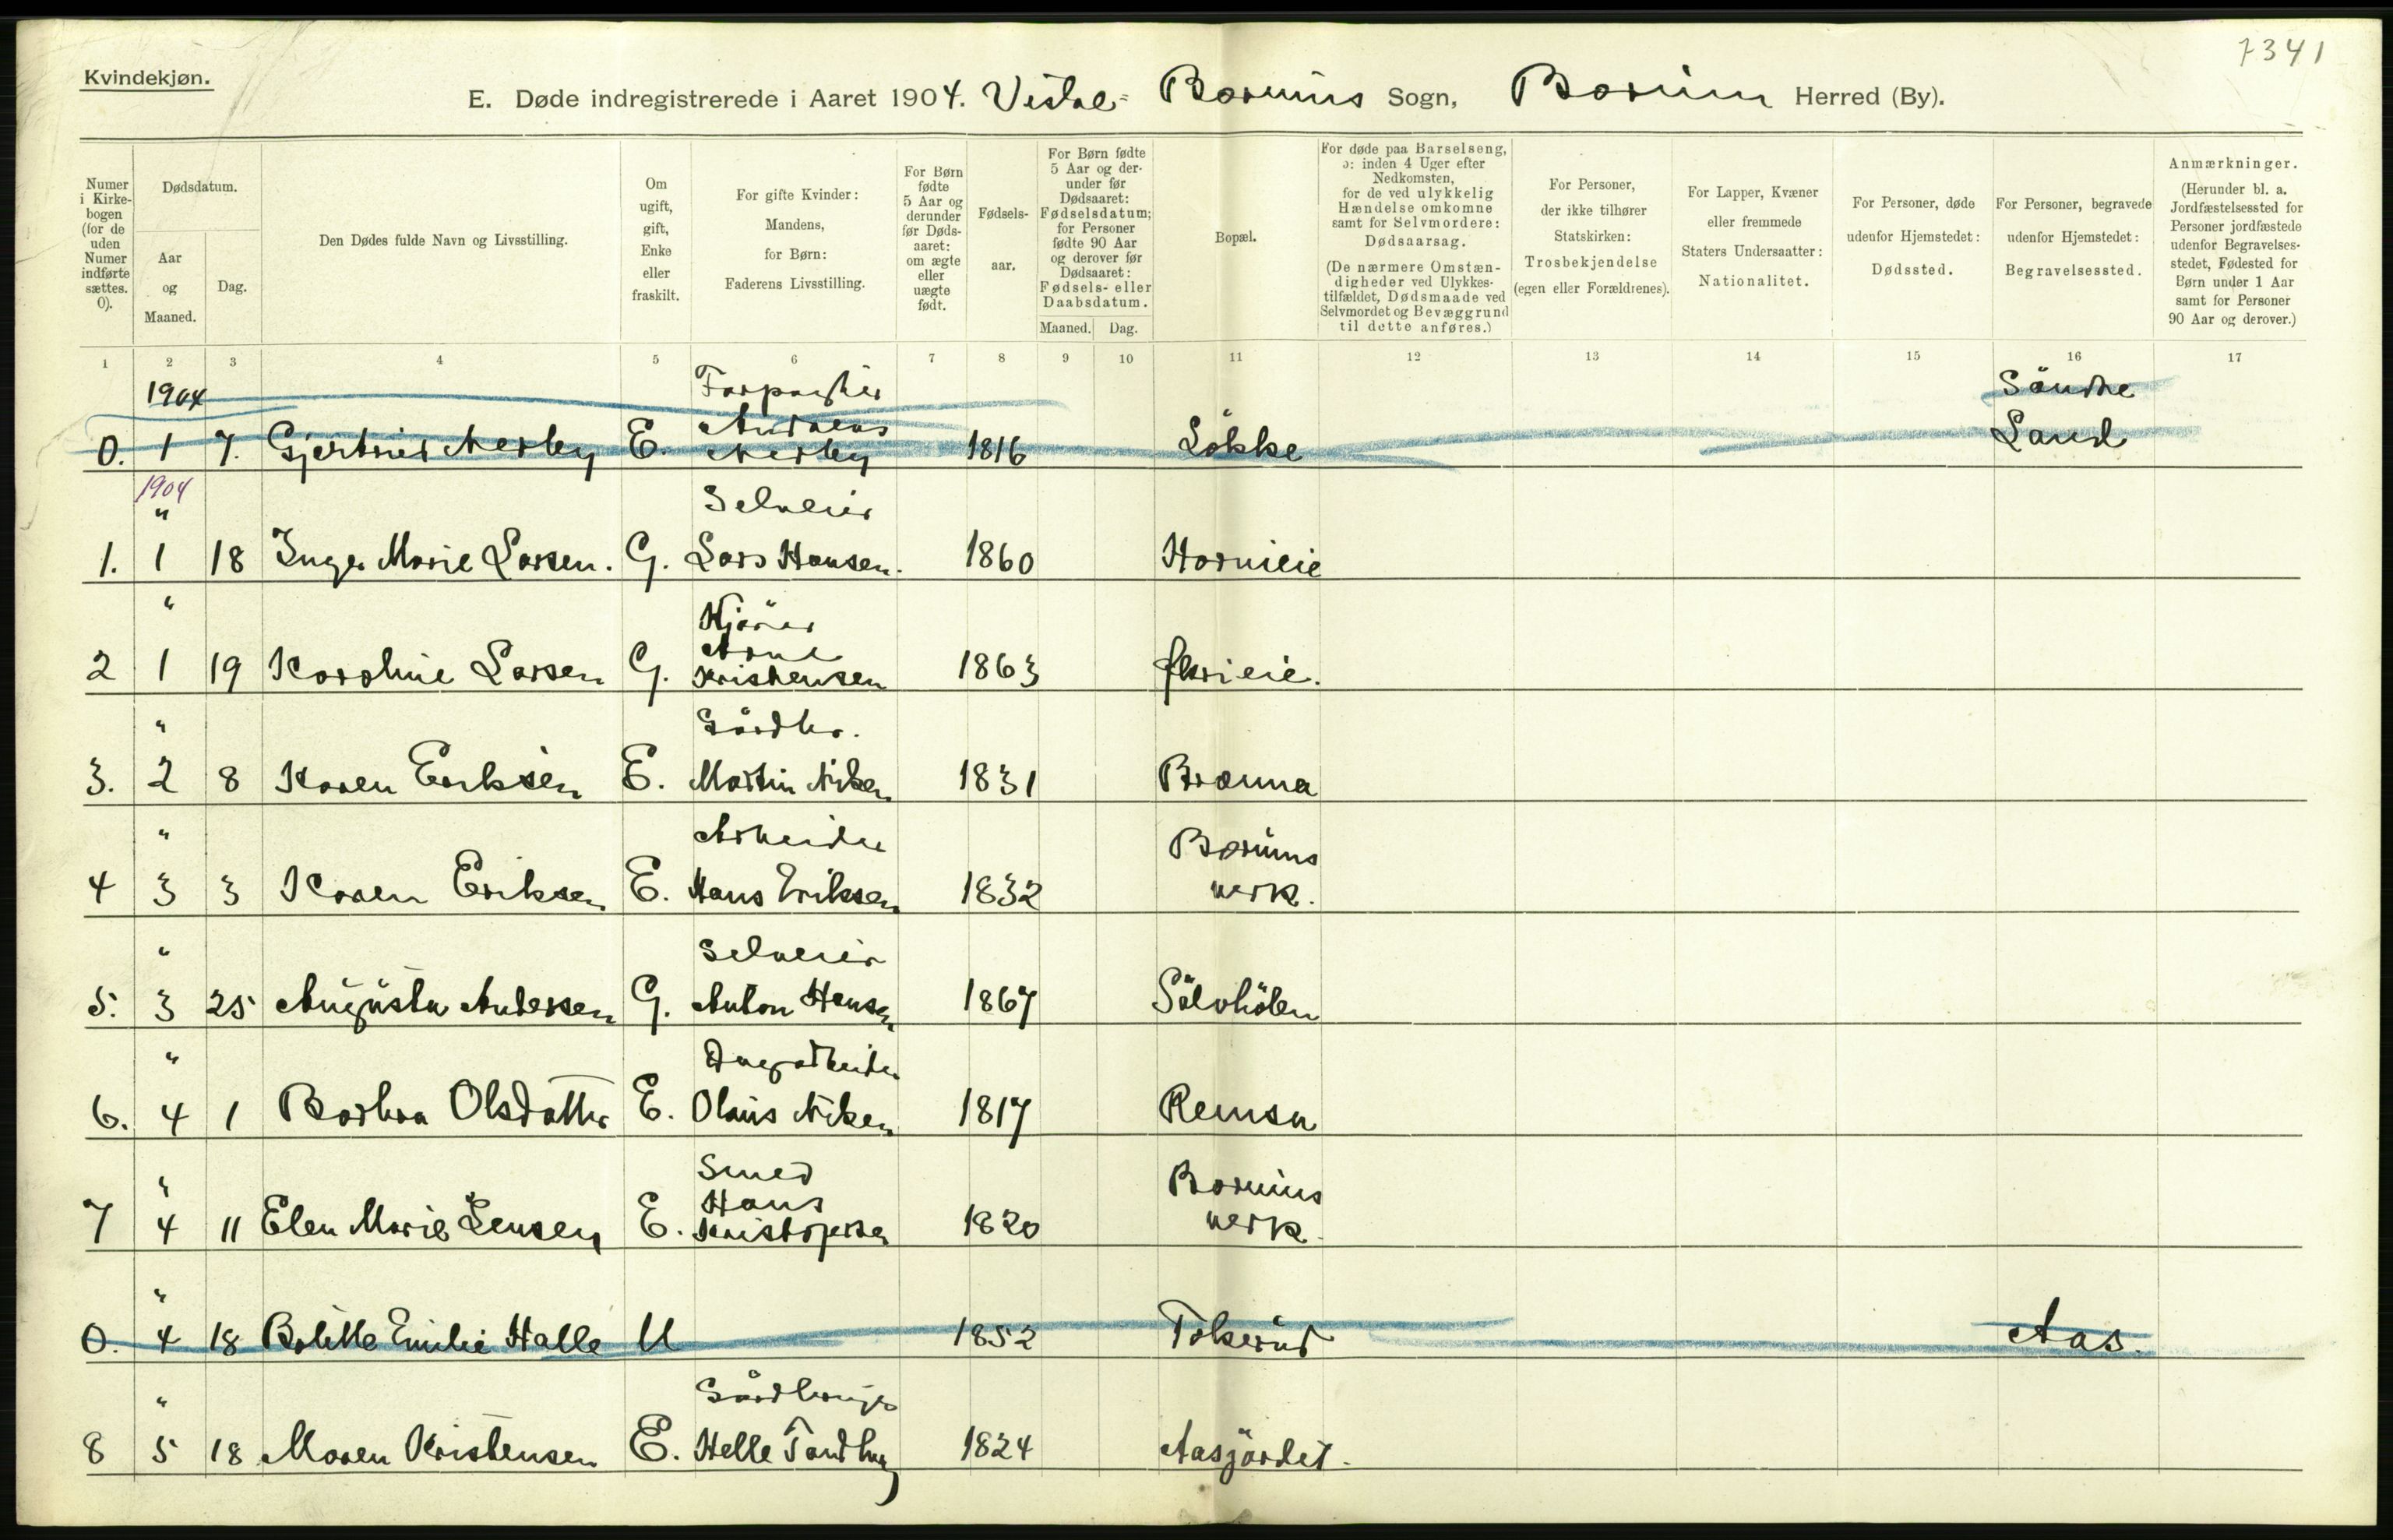 7341
Kvindekjøn.
E. Døde indregistrerede i Aaret 1904. Vestre Bærums Sogn, Bærum Herred (By).
Numer i Kirkebogen (for de uden Numer indførte sættes. 0).
Dødsdatum.
Aar og Maaned.
Dag.
Den Dødes fulde Navn og Livsstilling.
Om ugift, gift, Enke eller fraskilt.
For gifte Kvinder: Mandens, for Børn: Faderens Livsstilling.
For Børn fødte 5 Aar og derunder før Dødsaaret: om ægte eller uægte født.
Fødselsaar.
For Børn fødte 5 Aar og derunder før Dødsaaret: Fødselsdatum; for Personer fødte 90 Aar og derover før Dødsaaret: Fødsels- eller Daabsdatum.
Maaned. Dag.
Bopæl.
For døde paa Barselseng, ɔ: inden 4 Uger efter Nedkomsten, for de ved ulykkelig Hændelse omkomne samt for Selvmordere: Dødsaarsag.
(De nærmere Omstændigheder ved Ulykkestilfældet, Dødsmaade ved Selvmordet og Bevæggrund til dette anføres.)
For Personer, der ikke tilhører Statskirken: Trosbekjendelse (egen eller Forældrenes).
For Lapper, Kvæner eller fremmede Staters Undersaatter: Nationalitet.
For Personer, døde udenfor Hjemstedet: Dødssted.
For Personer, begravede udenfor Hjemstedet: Begravelsessted.
Anmærkninger. (Herunder bl. a. Jordfæstelsessted for Personer jordfæstede udenfor Begravelsesstedet, Fødested for Børn under 1 Aar samt for Personer 90 Aar og derover.)
1 2 3 4 5 6 7 8 9 10 11 12 13 14 15 16 17
1904 Forpagter Söndre
0. 1 7. Gjertrud Nerby E. Andreas Nerby 1816 Lökke Land
1904
" Selveier
1. 1 18 Inga Marie Larsen. G. Lars Hansen. 1860 Hornieie
" Kjörer
2 1 19 Karoline Larsen G. Arne Kristensen 1863
" Gårdbr.
3. 2 8 Karen Eriksen E. Martin 1831 Brænna
" Arbeider Bærums
4 3 3 Karen Eriksen E. Hans Eriksen 1832 verk.
" Selveier
5. 3 25 Augusta Andersen G. Anton Hansen 1867 Sölvhölen
" Dagarbeider
6. 4 1 Barbra Olsdatter E. Olaus 1817
" Smed Bærums
7 4 11 Elen Marie Jensen E. Hans Kristofersen 1820 verk.
"
0. 4 18 Bolette Emilie Halle U 1852 Tokerud Aas.
" Gårdbruger
8 5 18 Maren Kristensen E. Helle Tandberg 1824 Aasjordet.